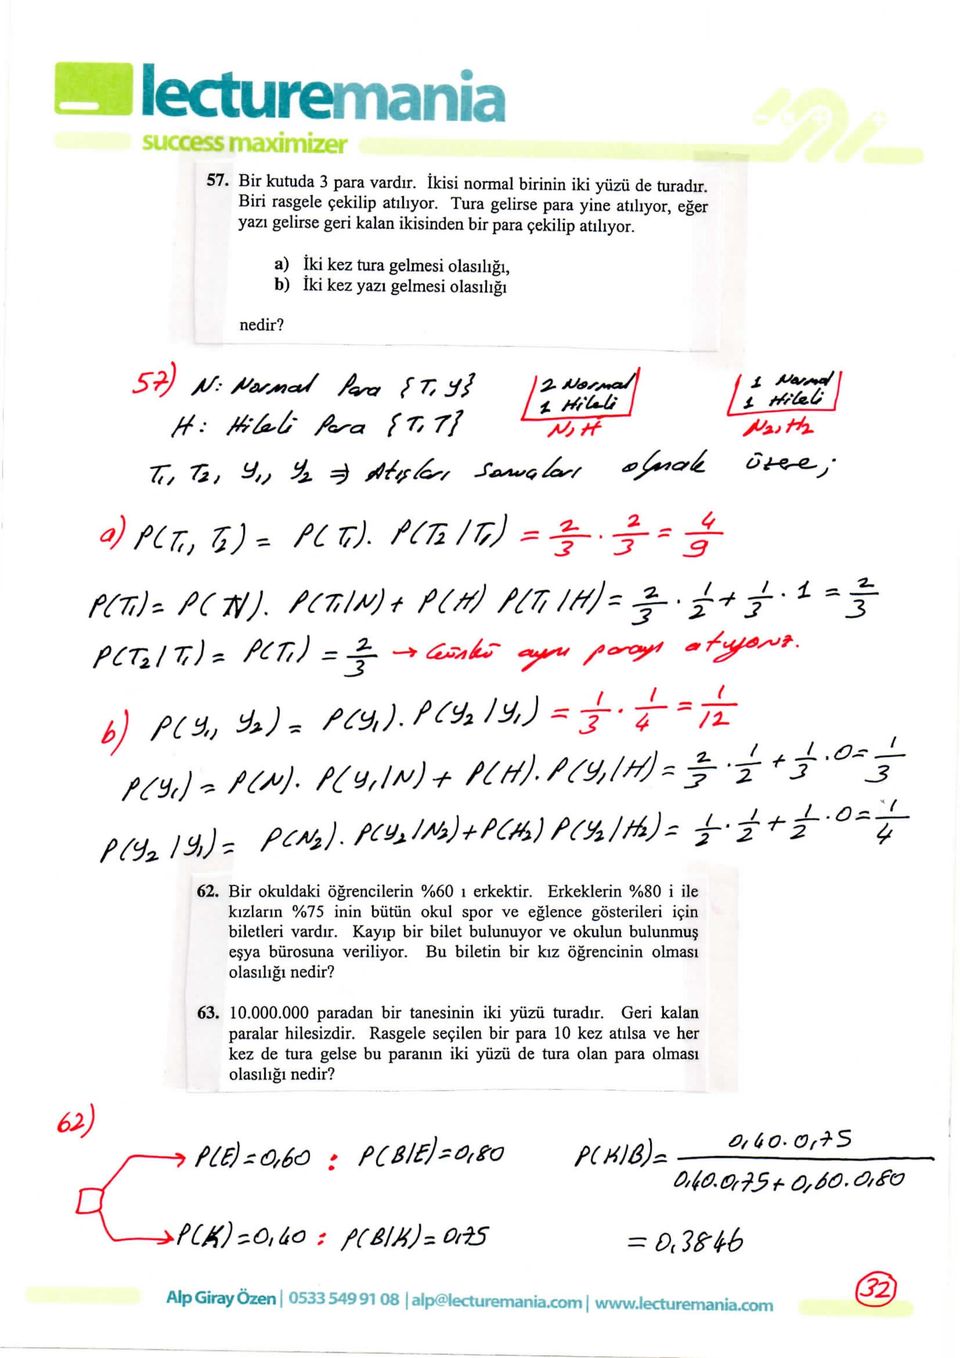 lecturemania
success maximizer
57. Bir kutuda 3 para vardır. İkisi normal birinin iki yüzü de turadır.
Biri rasgele çekilip atılıyor. Tura gelirse para yine atılıyor, eğer
yazı gelirse geri kalan ikisinden bir para çekilip atılıyor.
a) İki kez tura gelmesi olasılığı,
b) İki kez yazı gelmesi olasılığı
nedir?
57) N: Normal Para {T, Y}
H: Hileli Para {T, T}
2 Normal
1 Hileli
N, H
1 Normal
1 Hileli
N2, H2
T1, T2, Y1, Y2 ⇒ Atışları Sonuçları olmak üzere;
a) P(T1, T2) = P(T1). P(T2/T1) = 2/3 . 2/3 = 4/9
P(T1) = P(N). P(T1/N) + P(H) P(T1/H) = 2/3 . 1/2 + 1/3 . 1 = 2/3
P(T2/T1) = P(T1) = 2/3 → Çünkü aynı parayı atıyoruz.
b) P(Y1, Y2) = P(Y1). P(Y2/Y1) = 1/3 . 1/4 = 1/12
P(Y1) = P(N). P(Y1/N) + P(H). P(Y1/H) = 2/3 . 1/2 + 1/3 . 0 = 1/3
P(Y2/Y1) = P(N2). P(Y2/N2) + P(H2) P(Y2/H2) = 1/2 . 1/2 + 1/2 . 0 = 1/4
62. Bir okuldaki öğrencilerin %60 ı erkektir. Erkeklerin %80 i ile
kızların %75 inin bütün okul spor ve eğlence gösterileri için
biletleri vardır. Kayıp bir bilet bulunuyor ve okulun bulunmuş
eşya bürosuna veriliyor. Bu biletin bir kız öğrencinin olması
olasılığı nedir?
63. 10.000.000 paradan bir tanesinin iki yüzü turadır. Geri kalan
paralar hilesizdir. Rasgele seçilen bir para 10 kez atılsa ve her
kez de tura gelse bu paranın iki yüzü de tura olan para olması
olasılığı nedir?
62)
P(E) = 0,60 : P(B/E) = 0,80
P(K) = 0,40 : P(B/K) = 0,75
P(K/B) = 0,40.0,75 / 0,40.0,75 + 0,60.0,80
= 0,3846
Alp Giray Özen | 0533 549 91 08 | alp@lecturemania.com | www.lecturemania.com
32